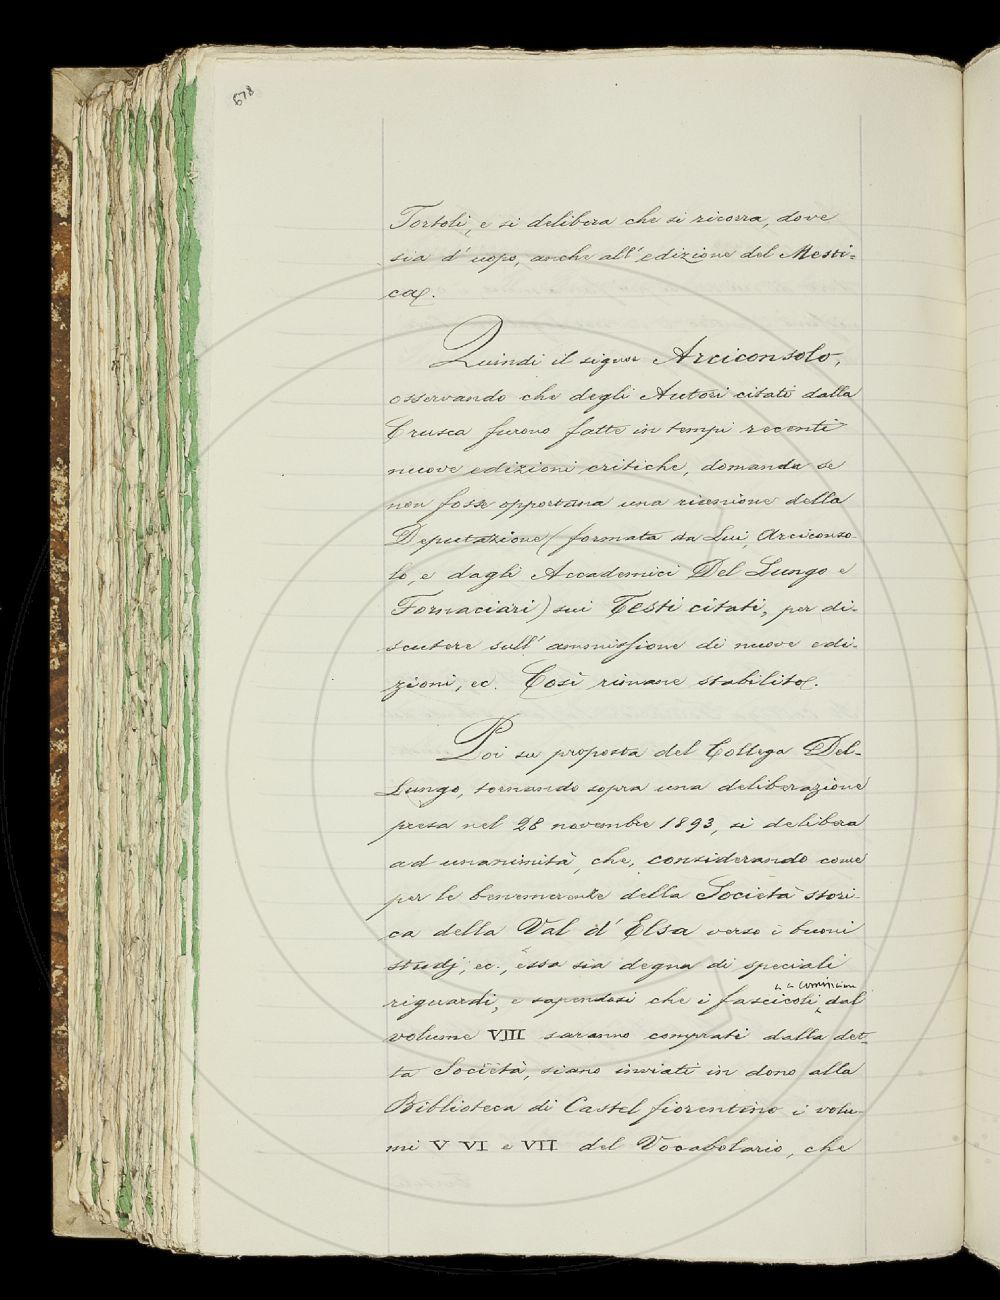 678
Tortoli, e si delibera che si ricorra, dove
sia d' uopo, anche all' edizione del Mesti-
ca.
Quindi il signor Arciconsolo,
osservando che degli Autori citati dalla
Crusca furono fatte in tempi recenti
nuove edizioni critiche, domanda se
non fosse opportuna una riunione della
Deputazione (formata da Lui, Arciconso-
lo, e dagli Accademici Del Lungo e
Fornaciari) sui Testi citati, per di-
scutere sull' ammissione di nuove edi-
zioni, ec. Così rimane stabilito.
Poi su proposta del Collega Del-
Lungo, tornando sopra una deliberazione
presa nel 28 novembre 1893, si delibera
ad unanimità, che, considerando come
per le benemerenze della Società stori-
ca della Val d' Elsa verso i buoni
studj, ec., essa sia degna di speciali
riguardi, e sapendosi che i fascicoli, dal
volume VIII saranno comprati dalla det-
ta Società, siano inviati in dono alla
Biblioteca di Castel fiorentino i volu-
mi V VI e VII del Vocabolario, che